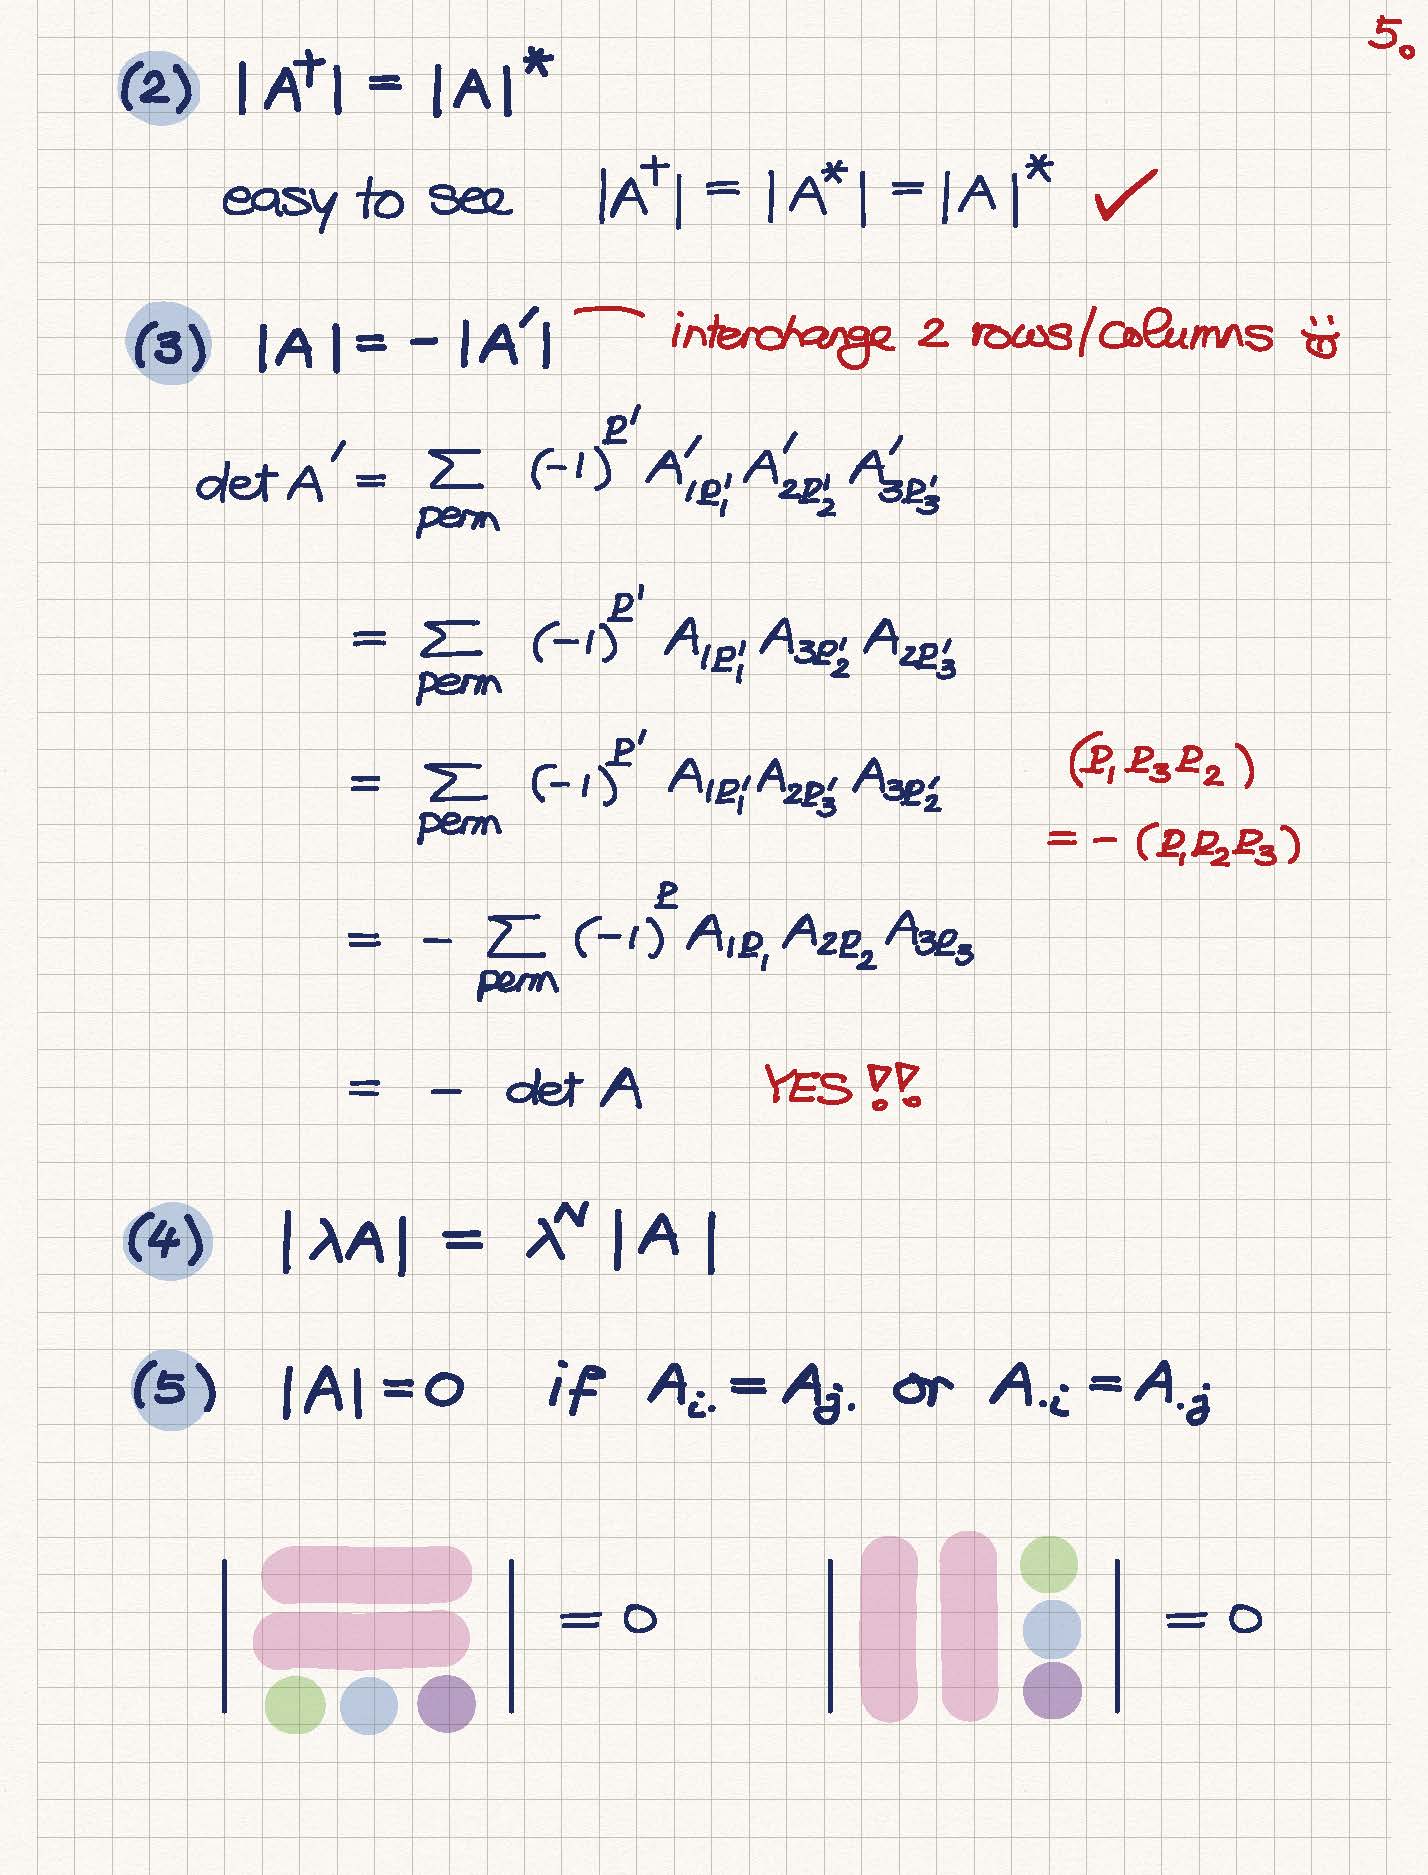 5.
(2) |A†| = |A|*
easy to see |A†| = |A*| = |A|* ✓
(3) |A| = - |A′| interchange 2 rows/columns
det A′ = ∑ (-1)^P′ A′_1P′_1 A′_2P′_2 A′_3P′_3
perm
= ∑ (-1)^P′ A_1P′_1 A_3P′_2 A_2P′_3
perm
= ∑ (-1)^P′ A_1P′_1 A_2P′_3 A_3P′_2
perm
(P_1 P_3 P_2)
= - (P_1 P_2 P_3)
= - ∑ (-1)^P A_1P_1 A_2P_2 A_3P_3
perm
= - det A YES!!
(4) |λA| = λ^N |A|
(5) |A| = 0 if A_i. = A_j. or A_.i = A_.j
| | = 0 | | = 0